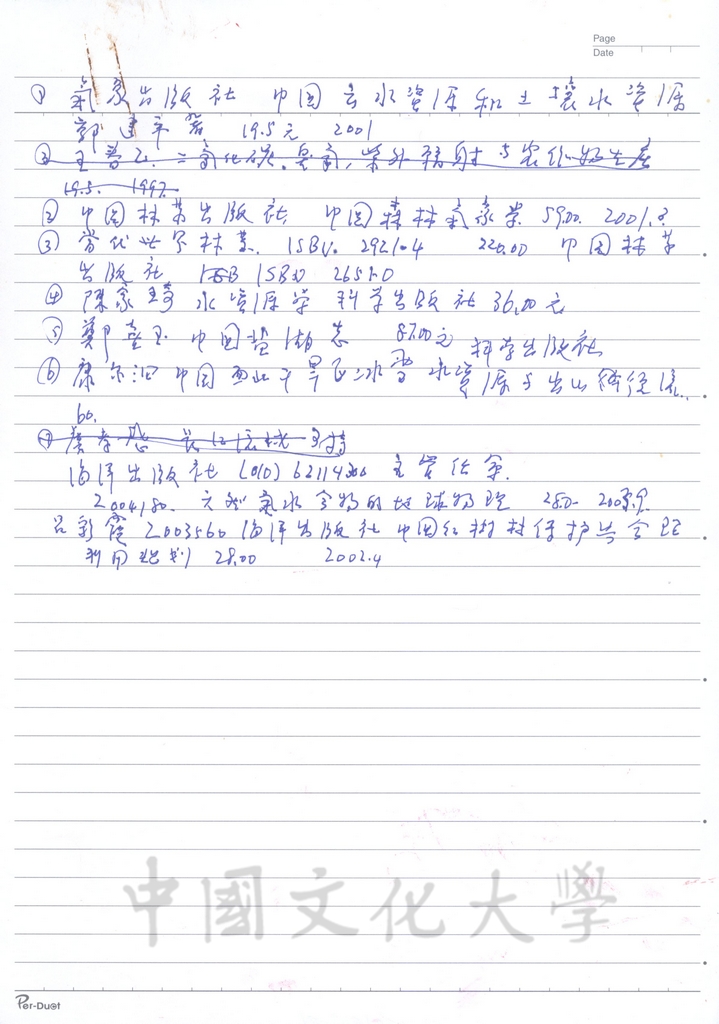 Page
Date
① 氣象出版社 中国云水資源和土壤水資源
郭建平著 19.5元 2001
② 王普 二氧化碳.臭氧,紫外辐射与农作物生产
19.5. 1997.
② 中国林業出版社 中国森林氣象学 59.00. 2001.
③ 當代世界林業. ISBN. 2921.4 220.00 中国林業
出版社 ISBN 2651.0
④ 陳家琦 水資源学 科学出版社 36.00元
⑤ 鄭喜玉 中国盐湖志 87.00元 科学出版社
⑥ 康尔泗 中国西北干旱区冰雪水資源与出山径流.
60.
⑦ 長江流域
海洋出版社 (010) 62114300 主
2004180. 天然氣水合物的地球物理 28.0
呂彩霞 2003560 海洋出版社 中国红樹林保护与合理
利用規划 28.00 2002.4
中國文化大學
Per-Duet